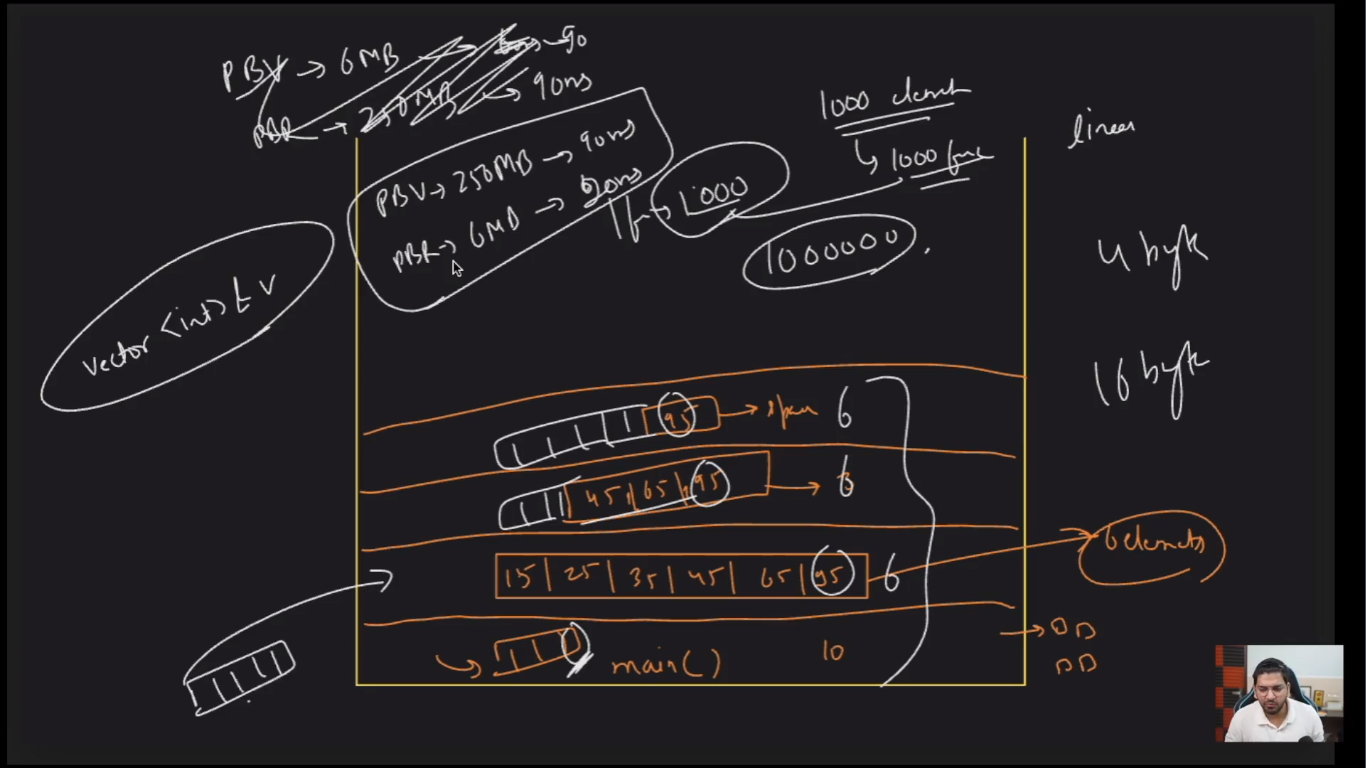 PBV → 6MB → 90
PBR → 250MB → 90ns
PBV → 250MB → 90ns
PBR → 6MB → 90ns
1000
1000 element
↳ 1000 func
1000000
linear
4 byte
16 byte
vector <int> & v
95 → 6
45 | 65 | 95 → 6
15 | 25 | 35 | 45 | 65 | 95 6
6 elements
main() 10